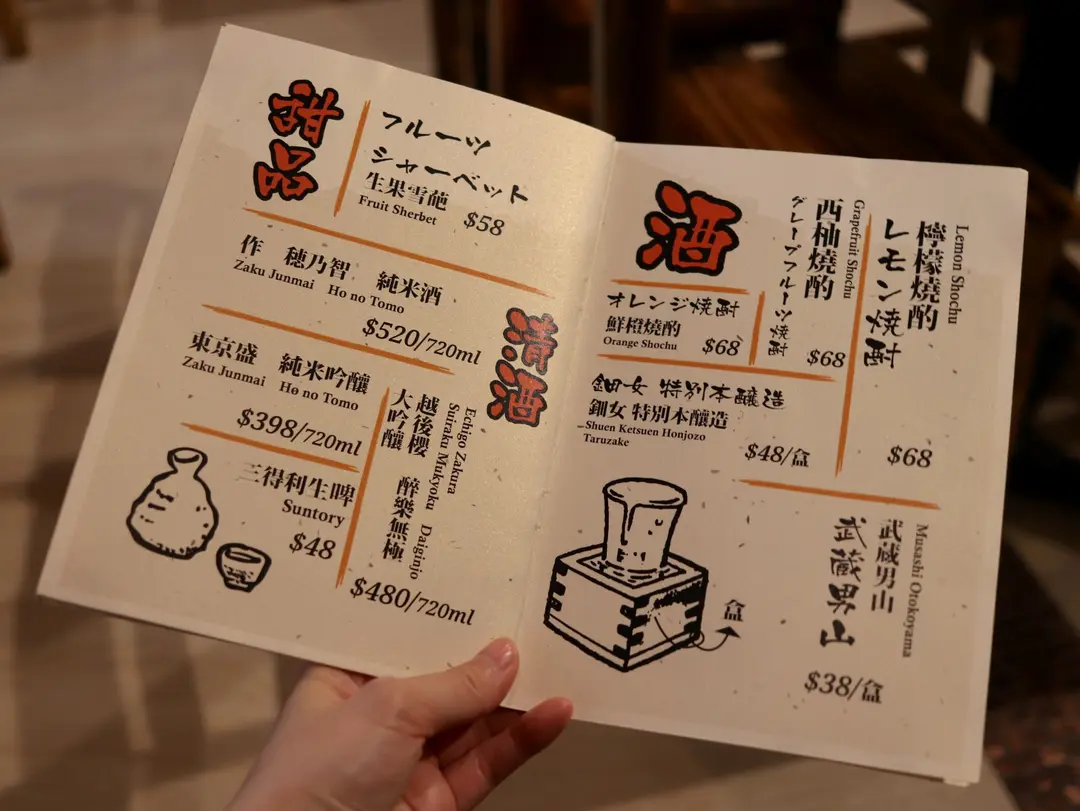 甜品
フルーツ
シャーベット
生果雪葩
Fruit Sherbet $58
清酒
作 穂乃智 純米酒
Zaku Junmai Ho no Tomo
$520/720ml
東京盛 純米吟釀
Zaku Junmai Ho no Tomo
$398/720ml
三得利生啤
Suntory
$48
Echigo Zakura
Suiraku Mukyoku Daiginjo
越後櫻 醉樂無極
大吟釀
$480/720ml
酒
オレンジ焼酎
鮮橙燒酌
Orange Shochu $68
Grapefruit Shochu
西柚燒酌
グレープフルーツ焼酎
$68
Lemon Shochu
檸檬燒酌
レモン焼酎
$68
鈿女 特別本醸造
鈿女 特別本釀造
Shuen Ketsuen Honjozo
Taruzake
$48/盒
盒
Musashi Otokoyama
武蔵男山
武蔵男山
$38/盒